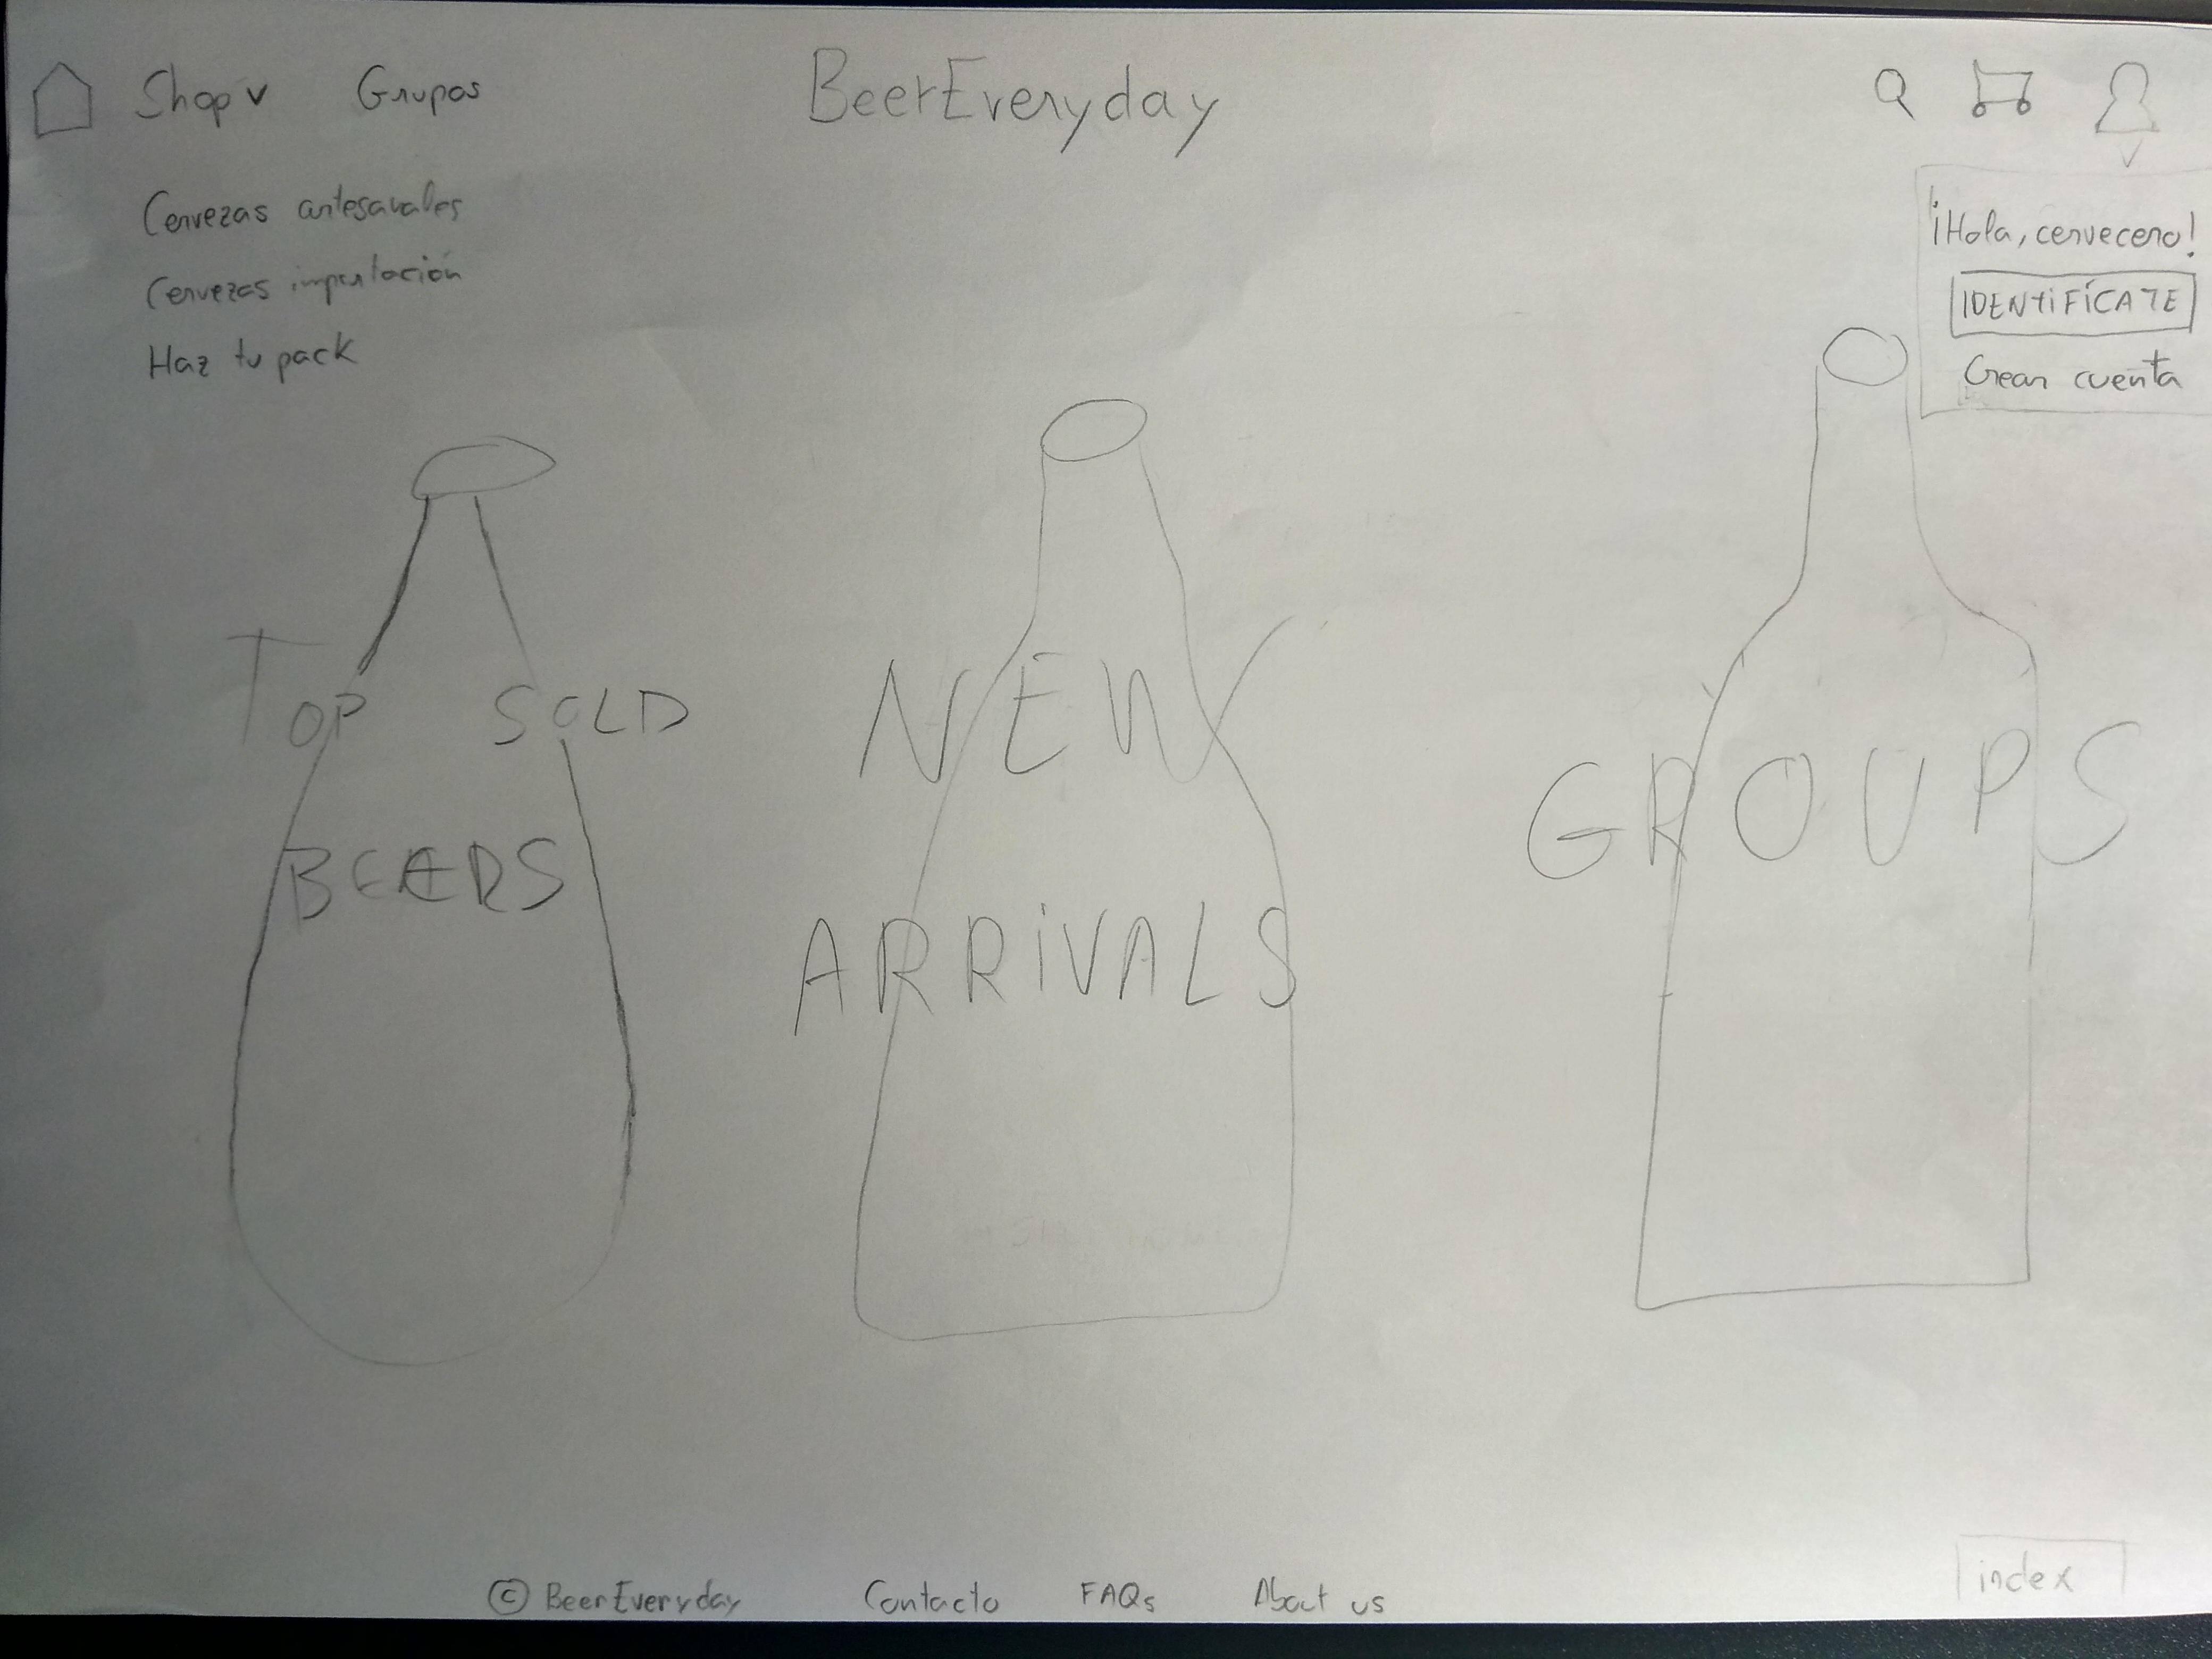 Shop v Grupos BeerEveryday
Cervezas artesanales
Cervezas importación
Haz tu pack
¡Hola, cervecero!
IDENTIFÍCATE
Crear cuenta
TOP SOLD
BEERS
NEW
ARRIVALS
GROUPS
© BeerEveryday Contacto FAQs About us
index